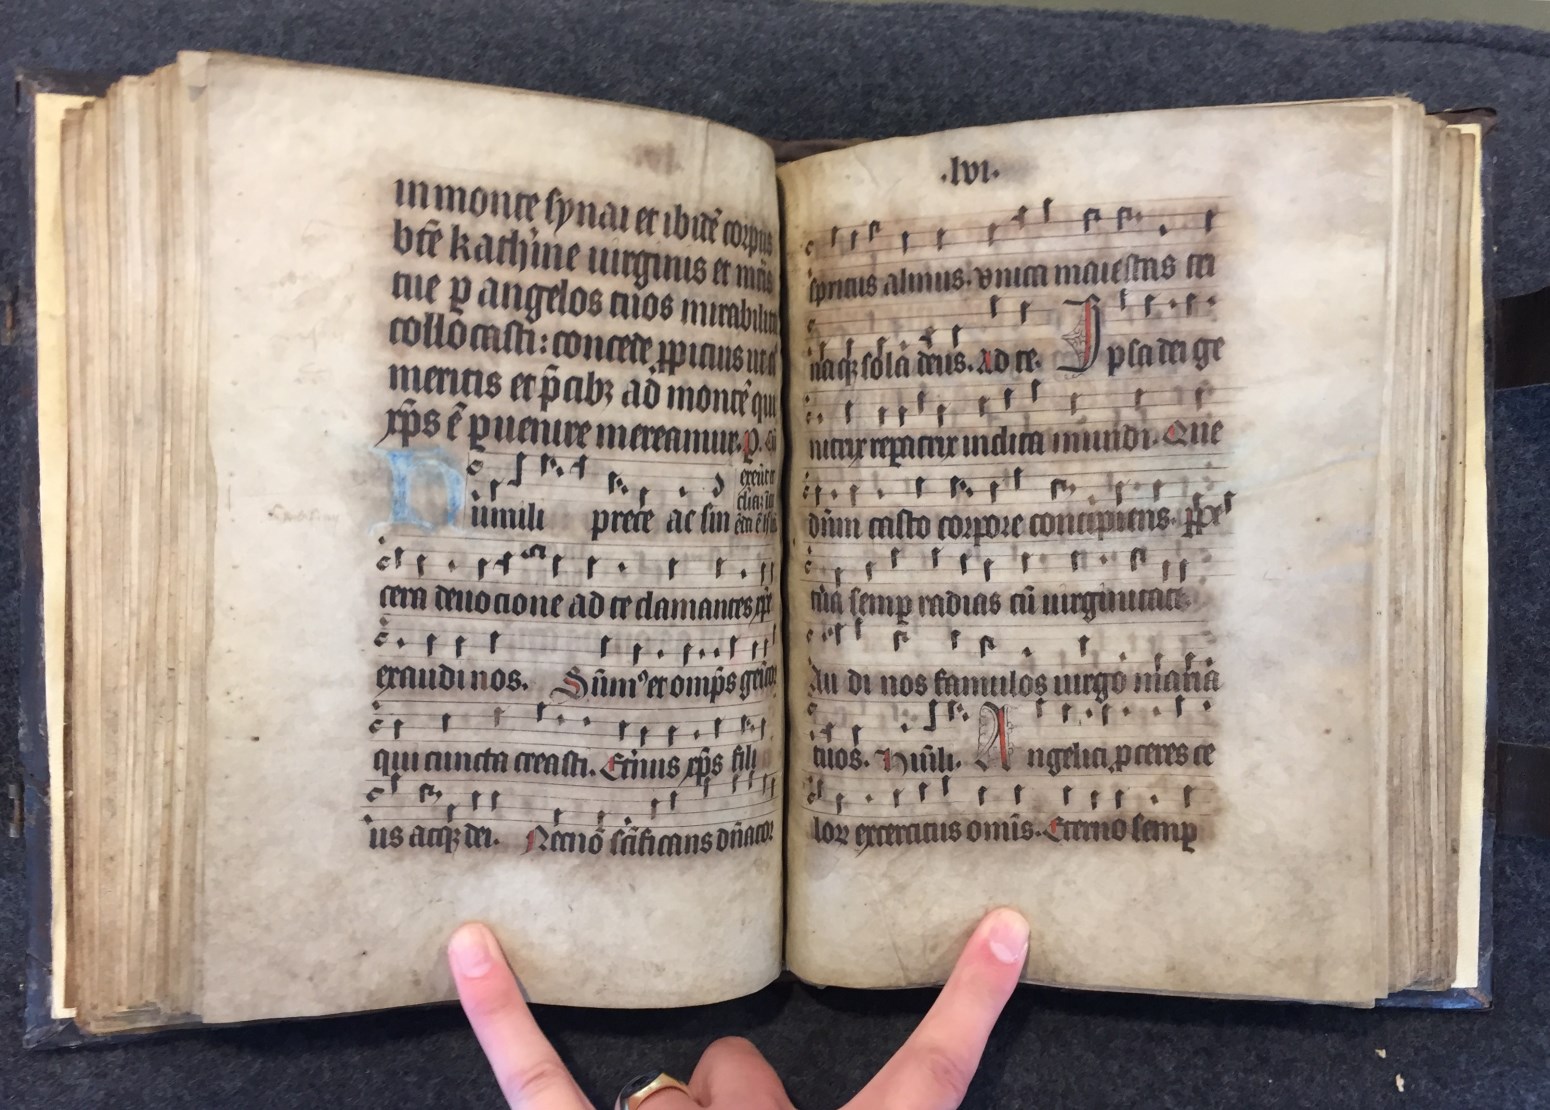 in monte synai et ibidē corpus
btē kath'ine uirginis et mr̄is
tue ꝑ angelos tuos mirabilit
collocasti: concede ꝓpicius ut ei'
meritis et p̄cibꝫ ad montē qui
xp̄s ē ꝑuenire mereamur. P.
Humili prece ac sin
cera deuocione ad te clamantes xp̄e
exaudi nos. Sūm' et omp̄s genitor
qui cuncta creasti. Et'nus xp̄s fili
us atqꝫ dei. Necnō sc̄ificans dn̄ator
.lvi.
spritus almus. vnica maiestas tri
naqꝫ sola deus. Ad te. Ipsa dei ge
nitrix repatrix inclita mundi. Que
dūm casto corpore concipiens. ꝑpet
tua semꝑ radias cū uirginitate
Au di nos famulos uirgo maria
tuos. Humīli. Angelici ꝓceres ce
lor exercitus omīs. Eterno semꝑ